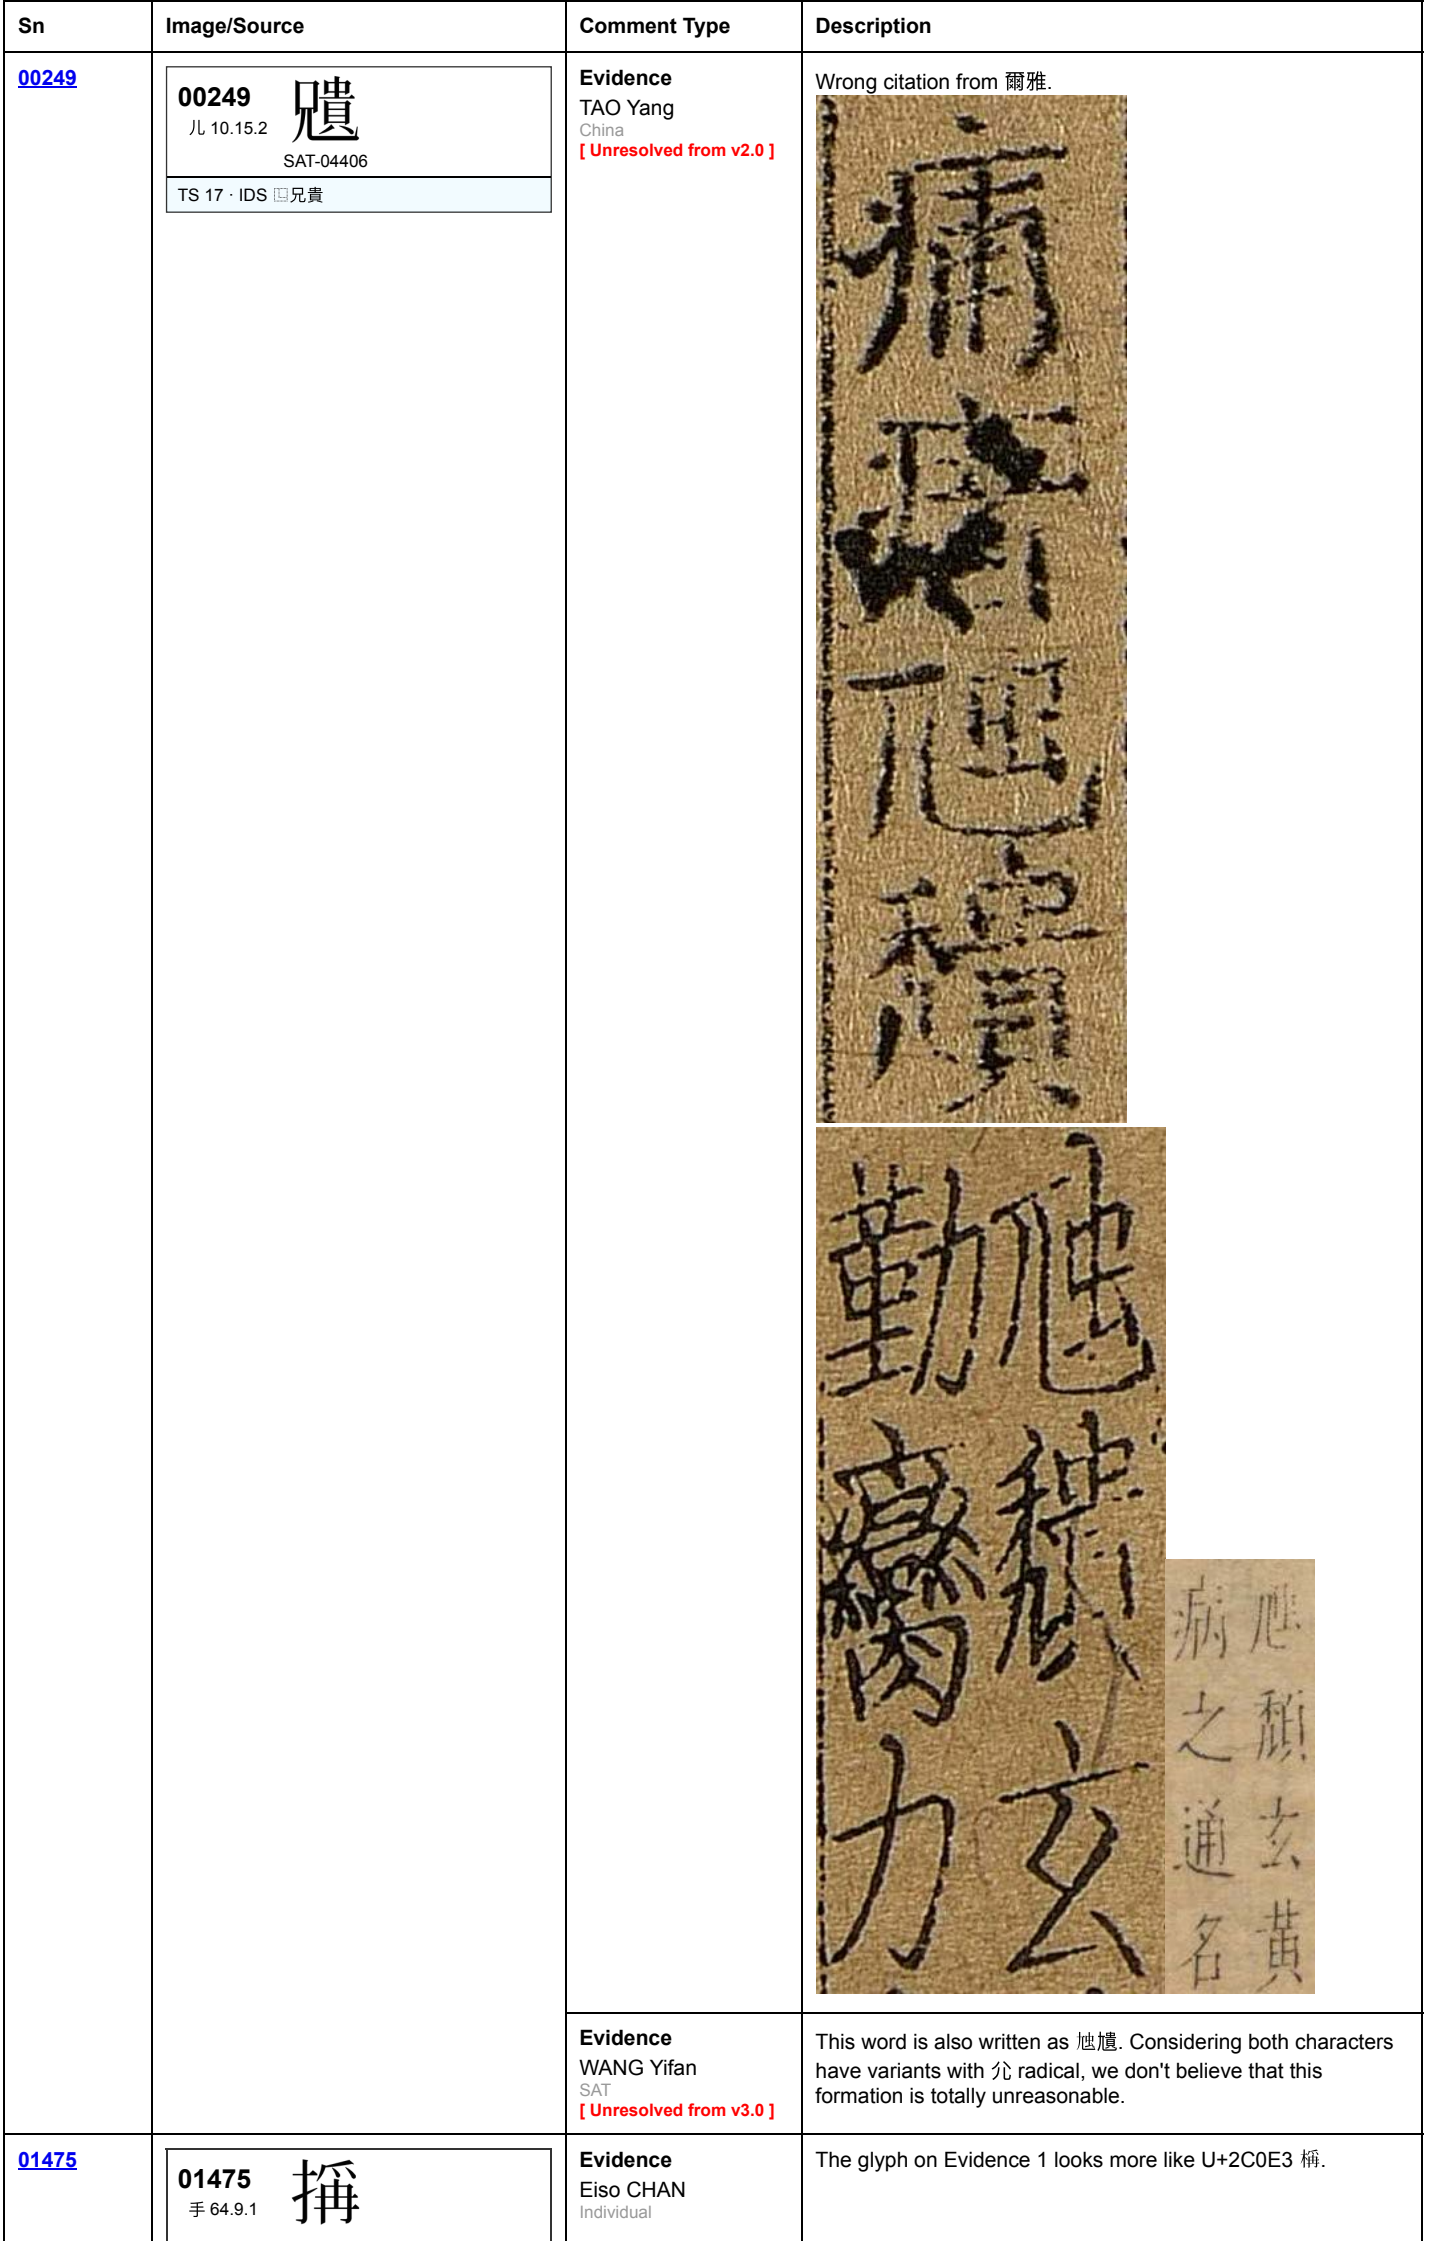 Sn Image/Source Comment Type Description
00249
00249
儿 10.15.2
SAT-04406
TS 17 · IDS ⿺兄貴
Evidence
TAO Yang
China
[ Unresolved from v2.0 ]
Wrong citation from 爾雅.
痡
虺
虺
玄
勤
力
虺頹玄黃
病之通名
Evidence
WANG Yifan
SAT
[ Unresolved from v3.0 ]
This word is also written as 尯尵. Considering both characters
have variants with 尣 radical, we don't believe that this
formation is totally unreasonable.
01475
01475
手 64.9.1
Evidence
Eiso CHAN
Individual
The glyph on Evidence 1 looks more like U+2C0E3 𬃣.